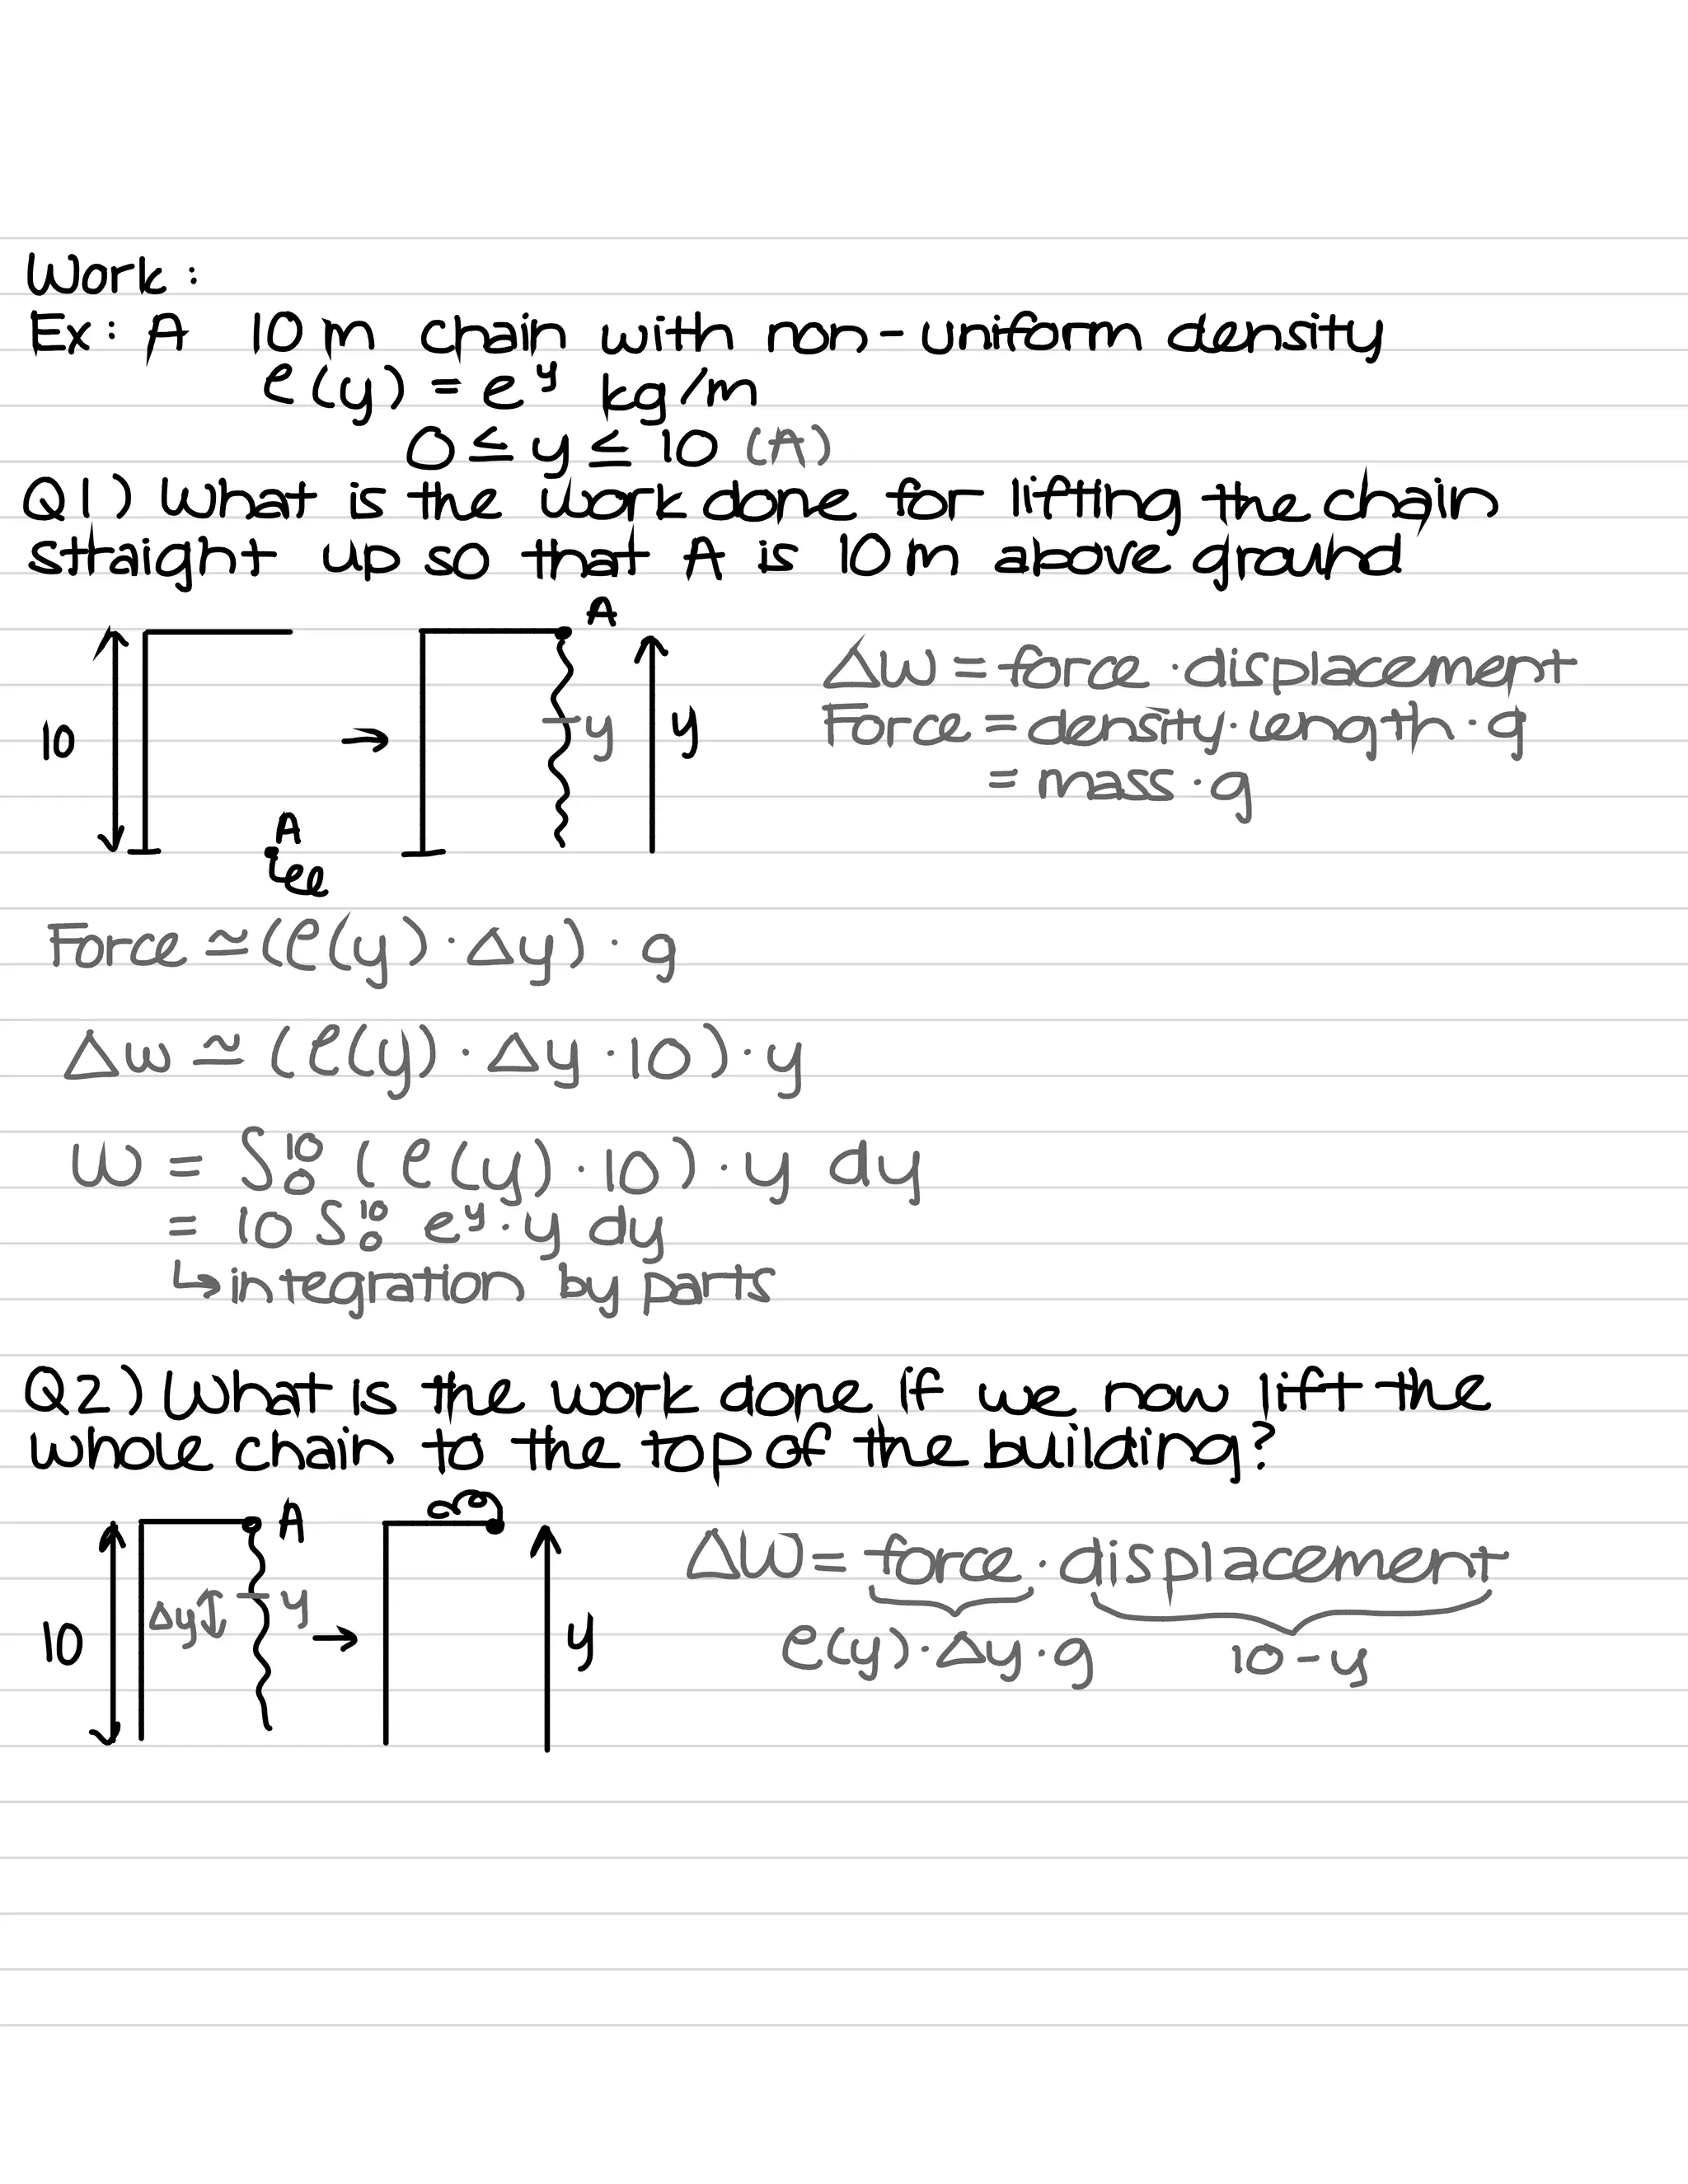 Work:
Ex: A 10 m chain with non-uniform density
ρ(y) = e^y kg/m
0 ≤ y ≤ 10 (A)
Q1) What is the work done for lifting the chain
straight up so that A is 10 m above ground
A
10
→
y
y
A
ΔW = force · displacement
Force = density · length · g
= mass · g
Force ≃ (ρ(y) · Δy) · g
Δw ≃ (ρ(y) · Δy · 10) · y
W = ∫₀¹⁰ (ρ(y) · 10) · y dy
= 10 ∫₀¹⁰ e^y · y dy
↳ integration by parts
Q2) What is the work done if we now lift the
whole chain to the top of the building?
A
10
Δy↕
y
→
y
ΔW = force · displacement
ρ(y) · Δy · g 10 - y